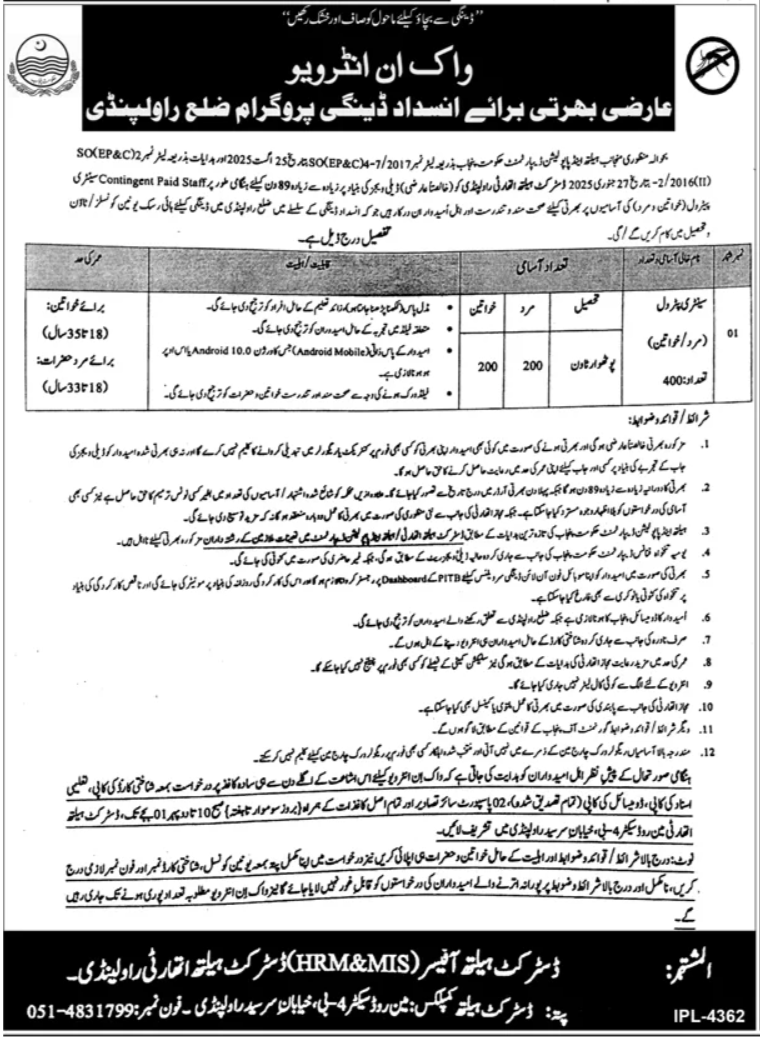 "ڈینگی سے بچاؤ کیلئے ماحول کو صاف اور خشک رکھیں"
واک ان انٹرویو
عارضی بھرتی برائے انسداد ڈینگی پروگرام ضلع راولپنڈی
بحوالہ منظوری منجانب ہیلتھ اینڈ پاپولیشن ڈیپارٹمنٹ حکومت پنجاب بذریعہ لیٹر نمبر SO(EP&C)4-7/2017 بتاریخ 25 اگست 2025 اور ہدایات بذریعہ لیٹر نمبر SO(EP&C)2
-2/2016(II) بتاریخ 27 جنوری 2025 ڈسٹرکٹ ہیلتھ اتھارٹی راولپنڈی کو (خالصتاً عارضی) ڈیلی ویجز کی بنیاد پر زیادہ سے زیادہ 89 دن کیلئے ہنگامی طور پر Contingent Paid Staff سینٹری
پیٹرول (خواتین و مرد) کی آسامیوں پر بھرتی کیلئے صحت مند و تندرست اور اہل اُمیدواران درکار ہیں جو کہ انسداد ڈینگی کے سلسلے میں ضلع راولپنڈی میں ڈینگی کیلئے ہائی رسک یونین کونسلز/ٹاؤن
و تحصیل میں کام کریں گے/گی۔
تفصیل درج ذیل ہے۔
نمبر شمار
نام خالی آسامی و تعداد
تعداد آسامی
قابلیت/اہلیت
عمر کی حد
تحصیل
مرد
خواتین
01
سینٹری پیٹرول
(مرد/خواتین)
تعداد: 400
پوٹھوار ٹاؤن
200
200
مڈل پاس (لکھنا پڑھنا جانتا ہو)، زائد تعلیم کے حامل افراد کو ترجیح دی جائے گی۔
متعلقہ فیلڈ میں تجربہ کے حامل امیدواران کو ترجیح دی جائے گی۔
امیدوار کے پاس ذاتی (Android Mobile) جس کا ورژن Android 10.0 یا اس اوپر
ہو ہونا لازمی ہے۔
فیلڈ ورک ہونے کی وجہ سے صحت مند اور تندرست خواتین و حضرات کو ترجیح دی جائے گی۔
برائے خواتین:
(18 تا 35 سال)
برائے مرد حضرات:
(18 تا 33 سال)
شرائط/قوائد و ضوابط:
1. مزکورہ بھرتی خالصتاً عارضی ہوگی اور بھرتی ہونے کی صورت میں کوئی بھی امیدوار اپنی بھرتی کو کسی بھی فورم پر کنٹریکٹ یا ریگولر میں تبدیلی کروانے کا کلیم نہیں کرے گا اور نہ ہی بھرتی شدہ امیدوار کو ڈیلی ویجز کی
جاب کے تجربے کی بنیاد پر کسی اور جاب کیلئے اپنی عمر کی حد میں رعایت حاصل کرنے کا حق حاصل ہوگا۔
2. بھرتی کا دورانیہ زیادہ سے زیادہ 89 دن ہوگا جبکہ پہلا دن بھرتی آرڈر میں درج تاریخ سے تصور کیا جائے گا۔ علاوہ ازیں محکمہ کو شائع شدہ اشتہار/آسامیوں کی تعداد میں بغیر کسی نوٹس ترمیم کا حق حاصل ہے نیز کسی بھی
آسامی کی درخواستوں کو بلا اظہار وجوہ مسترد کیا جا سکتا ہے۔ جبکہ مجاز اتھارٹی کی جانب سے نئی منظوری کی صورت میں بھرتی کا عمل دوبارہ منعقد ہوگا نہ کہ مزید توسیع دی جائے گی۔
3. ہیلتھ اینڈ پاپولیشن ڈیپارٹمنٹ حکومت پنجاب کی تازہ ترین ہدایات کے مطابق ڈسٹرکٹ ہیلتھ اتھارٹی/ہیلتھ اینڈ پاپولیشن ڈیپارٹمنٹ میں تعینات ملازمین کے رشتہ داران مزکورہ بھرتی کیلئے نااہل ہیں۔
4. یومیہ تنخواہ فنانس ڈیپارٹمنٹ حکومت پنجاب کی جانب سے جاری کردہ حالیہ ڈیلی ویجز ریٹ کے مطابق ہوگی، جبکہ غیر حاضری کی صورت میں کٹوتی کی جائے گی۔
5. بھرتی کی صورت میں امیدوار کو اپنا موبائل فون آن لائن ڈینگی سرویلنس کیلئے PITB کے Dashboard پر رجسٹر کروانا لازم ہوگا اور اس کی کارکردگی روزانہ کی بنیاد پر مونیٹر کی جائے گی اور ناقص کارکردگی کی بنیاد
پر تنخواہ کی کٹوتی یا نوکری سے بھی فارغ کیا جا سکتا ہے۔
6. اُمیدوار کا ڈومیسائل پنجاب کا ہونا لازمی ہے جبکہ ضلع راولپنڈی سے تعلق رکھنے والے امیدواران کو ترجیح دی جائے گی۔
7. صرف نادرہ کی جانب سے جاری کردہ شناختی کارڈ کے حامل امیدواران ہی انٹرویو دینے کے اہل ہوں گے۔
8. عمر کی حد میں مزید رعایت مجاز اتھارٹی کی ہدایات کے مطابق ہوگی نیز سلیکشن کمیٹی کے فیصلے کو کسی بھی فورم پر چیلنج نہیں کیا جا سکے گا۔
9. انٹرویو کے لئے الگ سے کوئی کال لیٹر نہیں جاری کیا جائے گا۔
10. مجاز اتھارٹی کی جانب سے پابندی کی صورت میں بھرتی کا عمل ملتوی یا کینسل بھی کیا جا سکتا ہے۔
11. دیگر شرائط/قوائد و ضوابط گورنمنٹ آف پنجاب کے قوانین کے مطابق لاگو ہوں گے۔
12. مندرجہ بالا آسامیاں ریگولر ورک چارج مین کے زمرے میں نہیں آتی اور منتخب شدہ اہلکار کسی بھی فورم پر ریگولر ورک چارج مین کیلئے کلیم نہیں کر سکتے۔
ہنگامی صورتحال کے پیش نظر اہل امیدواران کو ہدایت کی جاتی ہے کہ واک اِن انٹرویو کیلئے اس اشاعت کے اگلے دن سے ہی سادہ کاغذ پر درخواست بمعہ شناختی کارڈ کی کاپی، تعلیمی
اسناد کی کاپی، ڈومیسائل کی کاپی (تمام تصدیق شدہ)، 02 پاسپورٹ سائز تصاویر اور تمام اصل کاغذات کے ہمراہ {بروز سوموار تا ہفتہ} صبح 10 تا دوپہر 01 بجے تک، ڈسٹرکٹ ہیلتھ
اتھارٹی مین روڈ سیکٹر 4-بی، خیابانِ سرسید راولپنڈی میں تشریف لائیں۔
نوٹ: درج بالا شرائط/قوائد و ضوابط اور اہلیت کے حامل خواتین و حضرات ہی اپلائی کریں نیز درخواست میں اپنا مکمل پتہ بمعہ یونین کونسل، شناختی کارڈ نمبر اور فون نمبر لازمی درج
کریں، نامکمل اور درج بالا شرائط و ضوابط پر پورا نہ اترنے والے امیدواران کی درخواستوں کو قابل غور نہیں لایا جائے گا نیز واک اِن انٹرویو مطلوبہ تعداد پوری ہونے تک جاری رہیں
گے۔
المشتہر: ڈسٹرکٹ ہیلتھ آفیسر (HRM&MIS) ڈسٹرکٹ ہیلتھ اتھارٹی راولپنڈی۔
پتہ: ڈسٹرکٹ ہیلتھ کمپلکس: مین روڈ سیکٹر 4-بی، خیابانِ سرسید راولپنڈی۔ فون نمبر: 051-4831799
IPL-4362